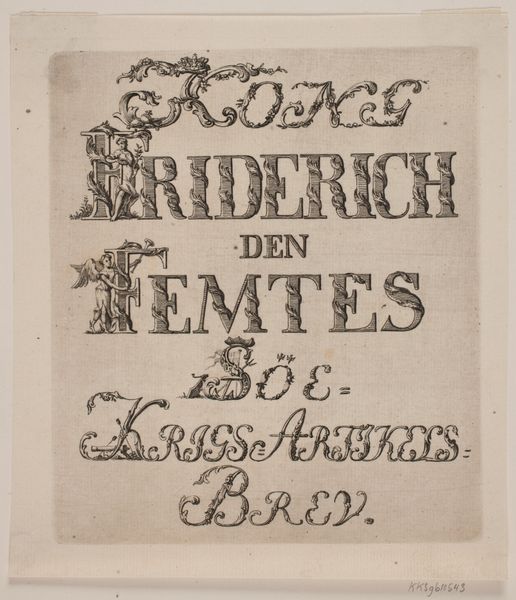 KONG
FRIDERICH
DEN
FEMTES
SÖE=
KRIGS=ARTIKELS=
BREV.
KKSgb11543